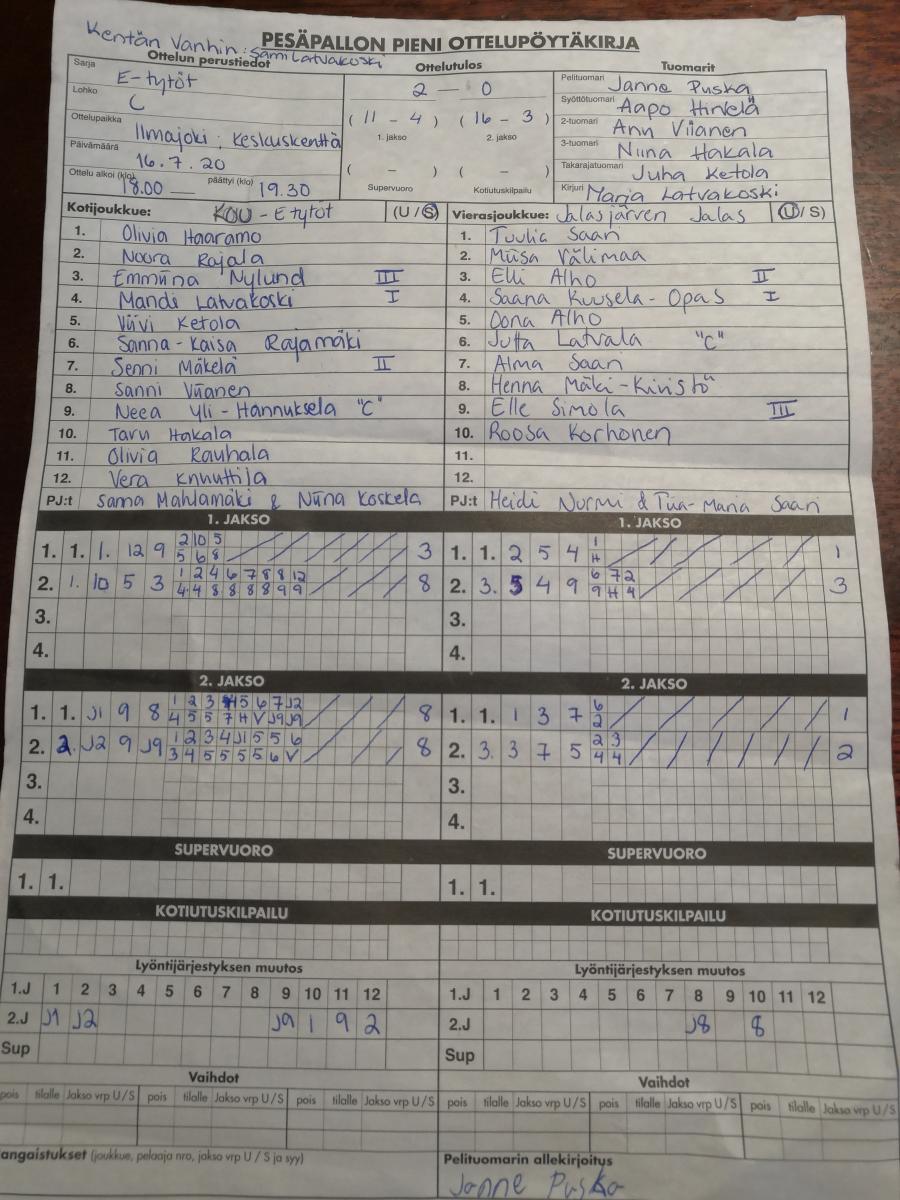 Kentän Vanhin: Sami Latvakoski
PESÄPALLON PIENI OTTELUPÖYTÄKIRJA
Ottelun perustiedot
Ottelutulos
Tuomarit
Sarja E-tytöt
Lohko C
Ottelupaikka Ilmajoki, Keskuskenttä
Päivämäärä 16.7.20
Ottelu alkoi (klo) 18.00 — päättyi (klo) 19.30
2 — 0
(11 - 4) (16 - 3)
1. jakso 2. jakso
( - ) ( - )
Supervuoro Kotiutuskilpailu
Pelituomari Janne Puska
Syöttötuomari Aapo Hinkelä
2-tuomari Anu Viianen
3-tuomari Niina Hakala
Takarajatuomari Juha Ketola
Kirjuri Marja Latvakoski
Kotijoukkue: KOU - E tytöt (U / S)
1. Olivia Haaramo
2. Noora Rajala
3. Emmiina Nylund III
4. Mandi Latvakoski I
5. Viivi Ketola
6. Sanna-Kaisa Rajamäki
7. Senni Mäkelä II
8. Sanni Viianen
9. Neea Yli-Hannuksela "C"
10. Taru Hakala
11. Olivia Rauhala
12. Vera Knuuttila
PJ:t Sanna Mahlamäki & Niina Koskela
Vierasjoukkue: Jalasjärven Jalas (U / S)
1. Tuulia Saari
2. Miisa Välimaa
3. Elli Alho II
4. Saana Kuusela-Opas I
5. Oona Alho
6. Jutta Latvala "C"
7. Alma Saari
8. Henna Mäki-Kivistö
9. Elle Simola III
10. Roosa Korhonen
11.
12.
PJ:t Heidi Nurmi & Tiia-Maria Saari
1. JAKSO
1. 1. 1. 12 9 2 10 5 3
5 6 8
2. 1. 10 5 3 1 2 4 6 7 8 8 12 8
4 4 8 8 8 8 9 9
3.
4.
1. JAKSO
1. 1. 2 5 4 1 1
H
2. 3. 5 4 9 6 7 2 3
9 H 4
3.
4.
2. JAKSO
1. 1. J1 9 8 1 2 3 4 5 6 7 J2 8
4 5 5 7 H V J9 J9
2. 2. J2 9 J9 1 2 3 4 J1 5 5 6 8
3 4 5 5 5 5 6 V
3.
4.
2. JAKSO
1. 1. 1 3 7 6 1
2
2. 3. 3 7 5 2 3 2
4 4
3.
4.
SUPERVUORO
1. 1.
SUPERVUORO
1. 1.
KOTIUTUSKILPAILU
KOTIUTUSKILPAILU
Lyöntijärjestyksen muutos
1.J 1 2 3 4 5 6 7 8 9 10 11 12
2.J J1 J2 J9 1 9 2
Sup
Lyöntijärjestyksen muutos
1.J 1 2 3 4 5 6 7 8 9 10 11 12
2.J J8 8
Sup
Vaihdot
pois tilalle Jakso vrp U / S pois tilalle Jakso vrp U / S pois tilalle Jakso vrp U / S
Vaihdot
pois tilalle Jakso vrp U / S pois tilalle Jakso vrp U / S pois tilalle Jakso vrp U / S
angaistukset (joukkue, pelaaja nro, jakso vrp U / S ja syy)
Pelituomarin allekirjoitus
Janne Puska